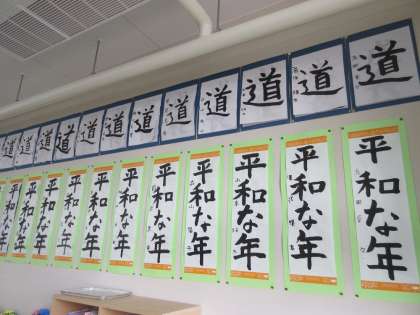 道 道 道 道 道 道 道 道 道 道 道 道
平和な年
平和な年
平和な年
平和な年
平和な年
平和な年
平和な年
平和な年
平和な年
平和な年
平和な年